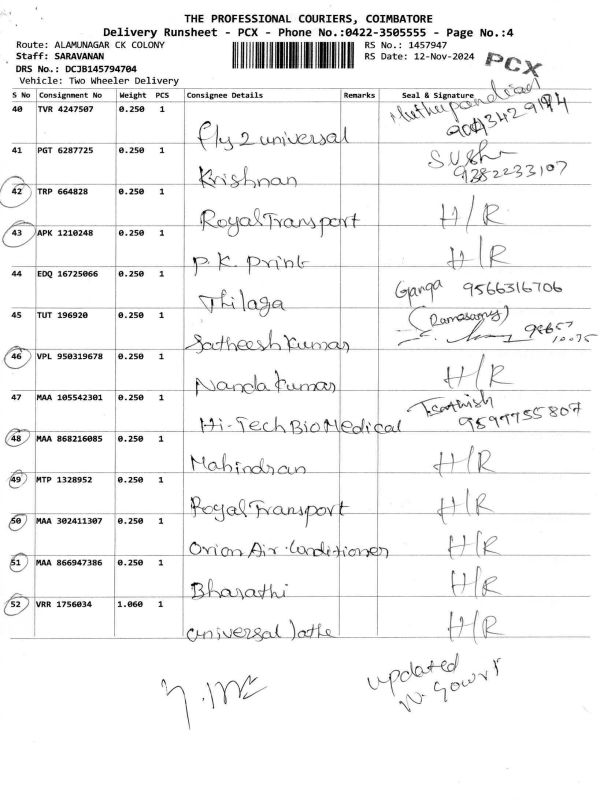 THE PROFESSIONAL COURIERS, COIMBATORE
Delivery Runsheet - PCX - Phone No.:0422-3505555 - Page No.:4
Route: ALAMUNAGAR CK COLONY RS No.: 1457947
Staff: SARAVANAN RS Date: 12-Nov-2024 PCX
DRS No.: DCJB145794704
Vehicle: Two Wheeler Delivery
S No Consignment No Weight PCS Consignee Details Remarks Seal & Signature
40 TVR 4247507 0.250 1 Fly 2 universal Muthupandian
41 PGT 6287725 0.250 1 Krishnan 9282233107
42 TRP 664828 0.250 1 Royal Transport H/R
43 APK 1210248 0.250 1 P.K. Print H/R
44 EDQ 16725066 0.250 1 Thilaga Ganga 9566316706
45 TUT 196920 0.250 1 Satheesh Kumar (Ramasamy)
46 VPL 950319678 0.250 1 Nanda Kumar H/R
47 MAA 105542301 0.250 1 Hi-Tech BioMedical T. Sathish 9597755807
48 MAA 868216085 0.250 1 Mahindran H/R
49 MTP 1328952 0.250 1 Royal Transport H/R
50 MAA 302411307 0.250 1 Orion Air Conditioner H/R
51 MAA 866947386 0.250 1 Bharathi H/R
52 VRR 1756034 1.060 1 universal lathe H/R
updated
N. Gowri